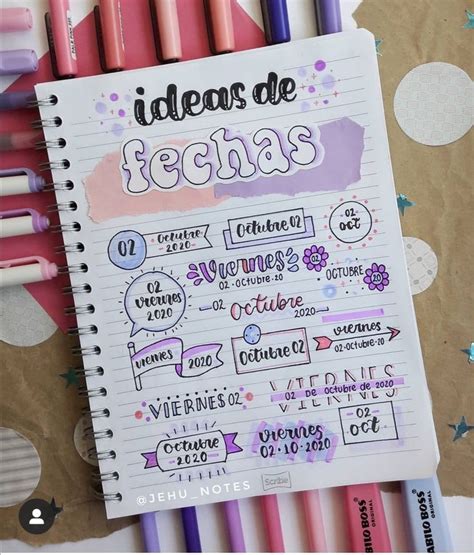 ideas de
fechas
02 octubre 2020
Octubre 02
02
oct
02
viernes
2020
Viernes
02·octubre·20
02
OCTUBRE
20
Octubre
2020
viernes 2020
Octubre 02
viernes
02-octubre-20
VIERNES 02
VIERNES
02 DE octubre de 2020
octubre
2020
viernes
02·10·2020
02
oct
@JEHU_NOTES
Scribe
STABILO BOSS
ABILO BOSS